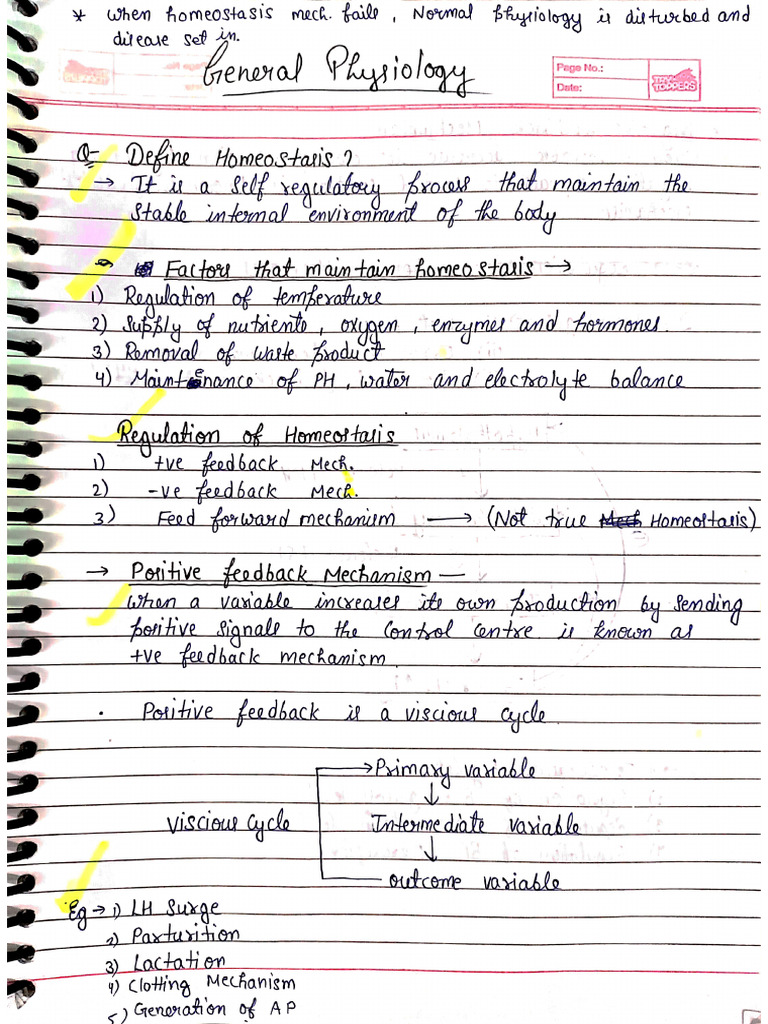 * when homeostasis mech. fails, Normal physiology is disturbed and
disease set in.
General Physiology
Page No.:
Date:
TOPPERS
Q- Define Homeostasis?
→ It is a self regulatory process that maintain the
stable internal environment of the body
→ Factors that maintain homeostasis →
1) Regulation of temperature
2) Supply of nutrients, oxygen, enzymes and hormones.
3) Removal of waste product
4) Maintenance of PH, water and electrolyte balance
Regulation of Homeostasis
1) +ve feedback Mech.
2) -ve feedback Mech.
3) Feed forward mechanism → (Not true Homeostasis)
→ Positive feedback Mechanism —
when a variable increases its own production by sending
positive signals to the control centre is known as
+ve feedback mechanism.
· Positive feedback is a viscious cycle
→ Primary variable
↓
viscious cycle Intermediate variable
↓
outcome variable
Eg → 1) LH Surge
2) Parturition
3) Lactation
4) Clotting Mechanism
5) Generation of AP